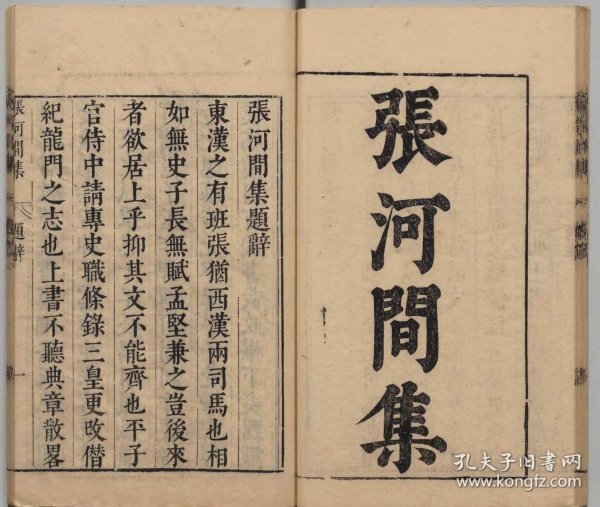 張河間集
張河間集題辭
東漢之有班張猶西漢兩司馬也相
如無史子長無賦孟堅兼之豈後來
者欲居上乎抑其文不能齊也平子
官侍中請專史職條錄三皇更攺僣
紀龍門之志也上書不聽典章散畧
張河間集 題辭 一
孔夫子旧书网
www.kongfz.com